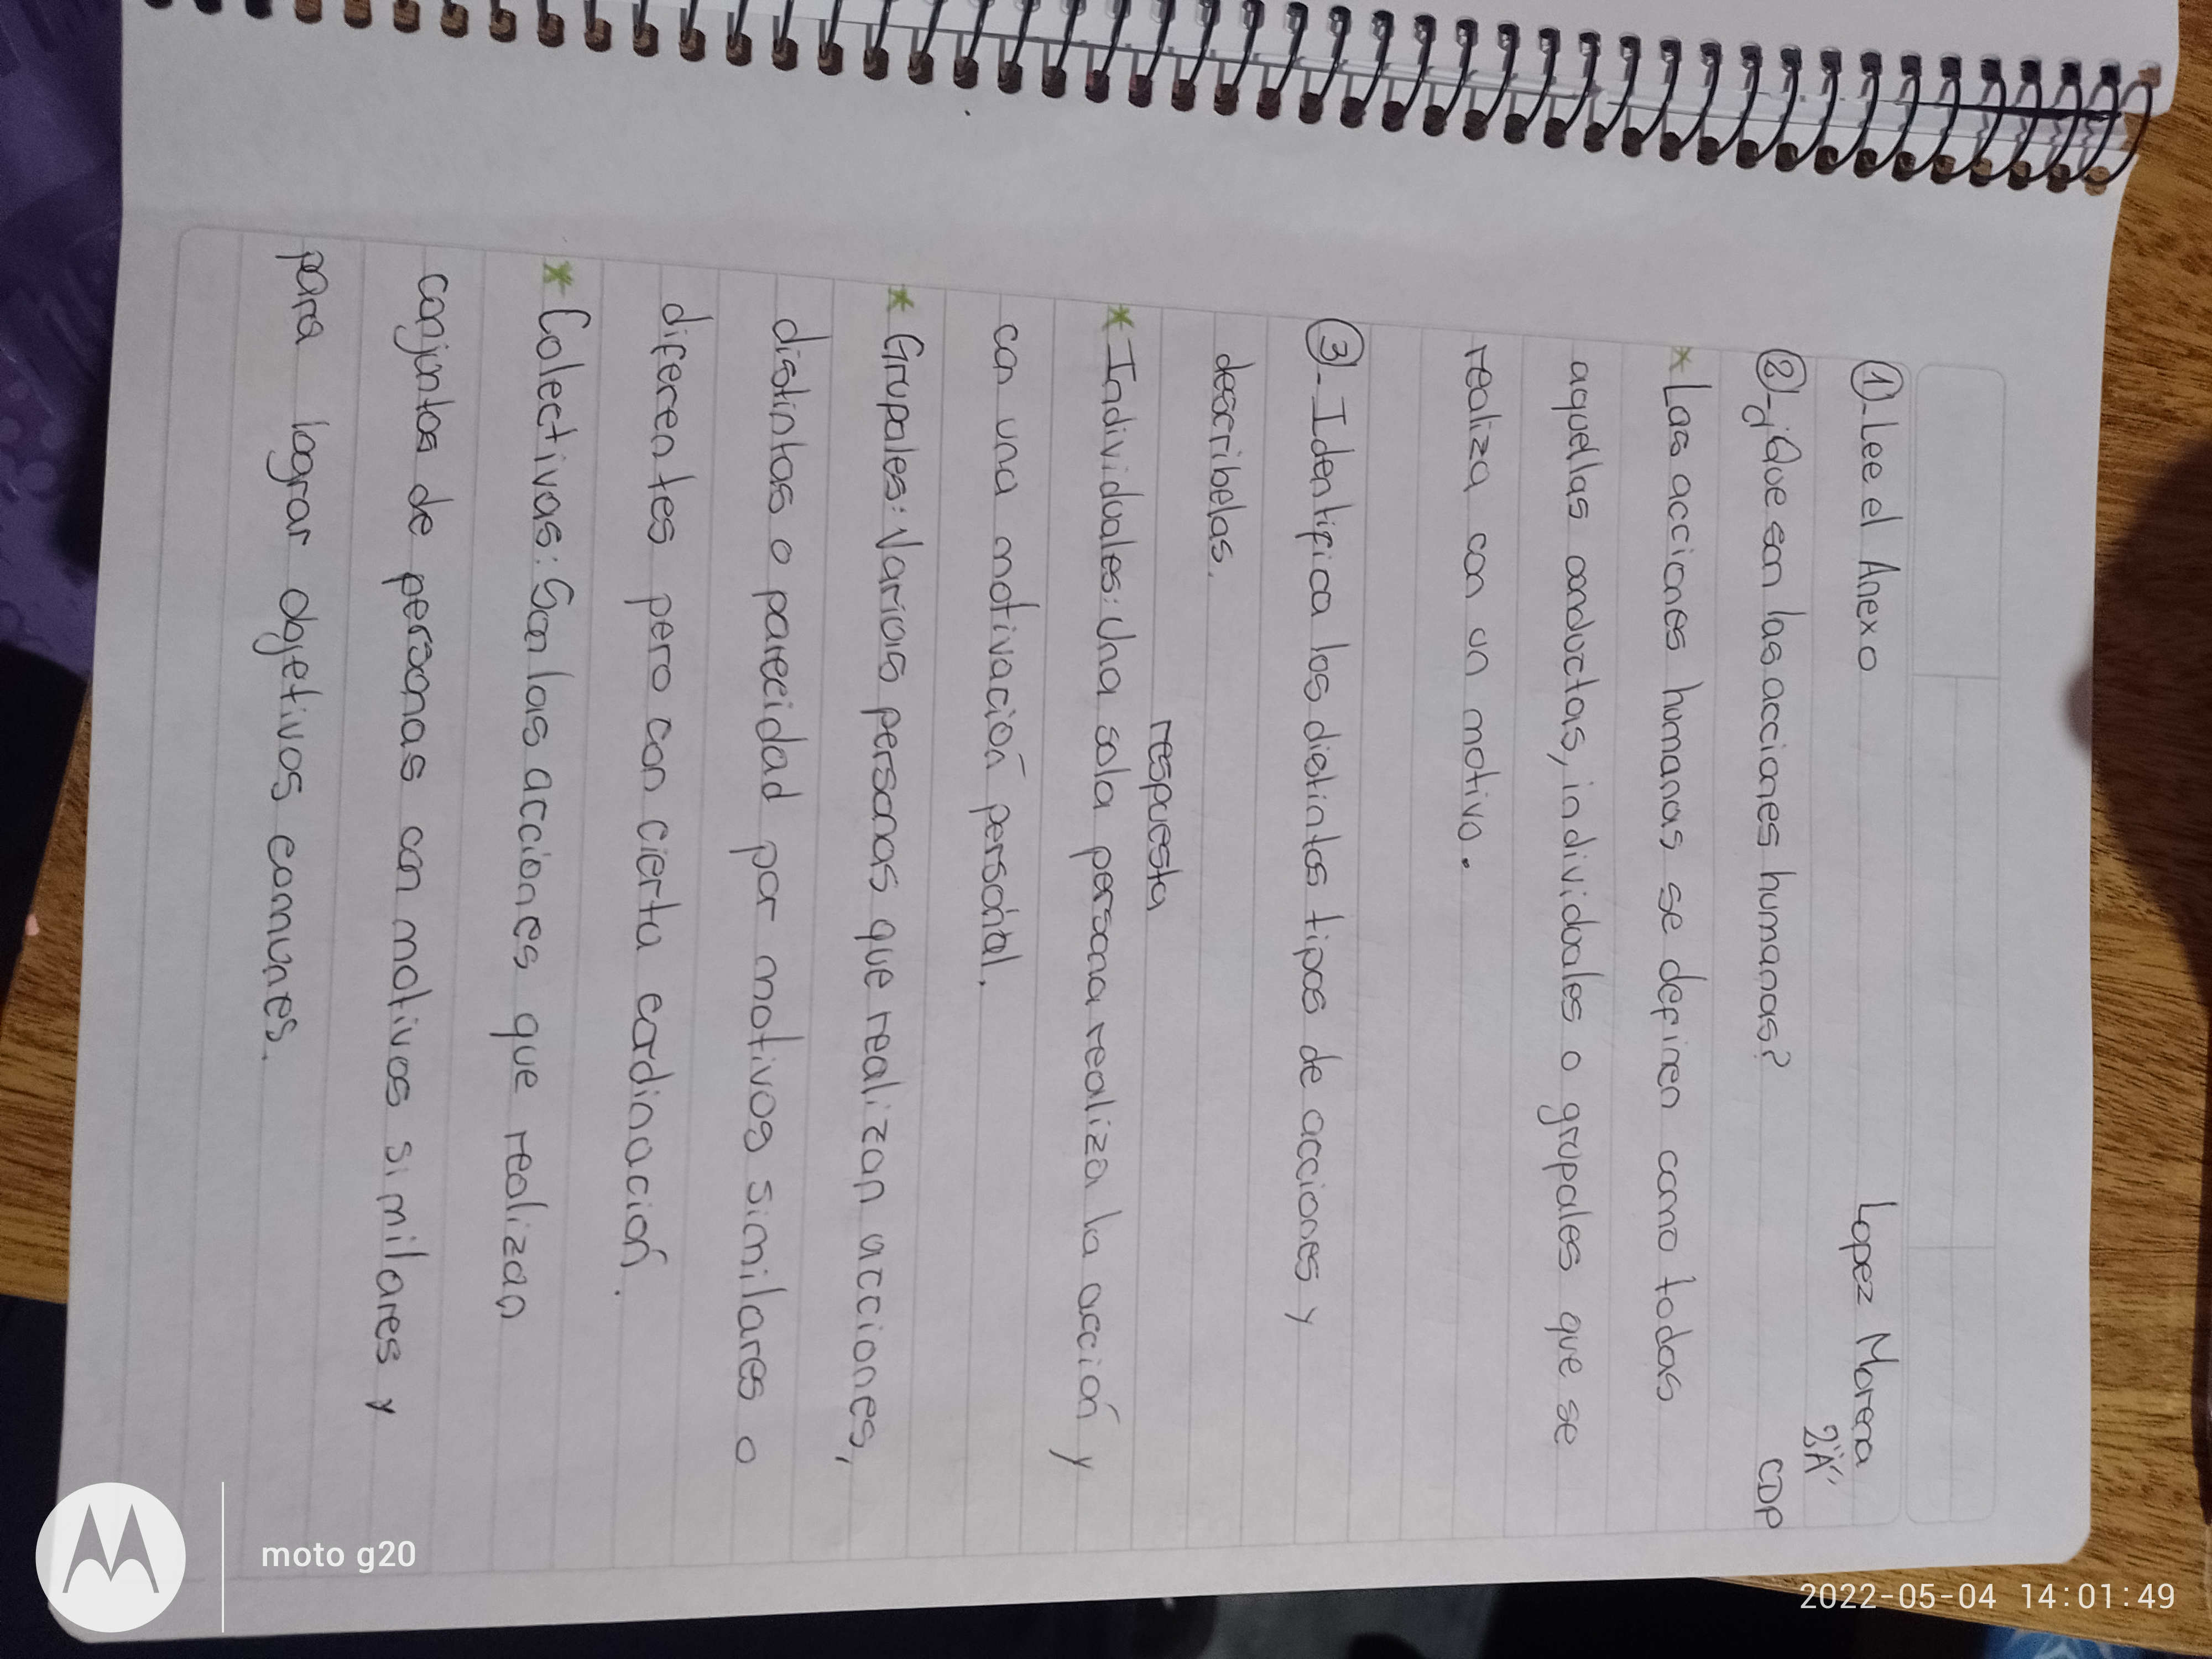 ①-Lee el Anexo Lopez Morena
2"A"
②-¿Que son las acciones humanas? CDP
* Las acciones humanas se definen como todas
aquellas conductas, individuales o grupales que se
realiza con un motivo.
③-Identifica los distintos tipos de acciones y
describelas.
respuesta
* Individuales: Una sola persona realiza la acción y
con una motivación personal.
* Grupales: Varios personas que realizan acciones,
distintas o parecidad por motivos similares o
diferentes pero con cierta cordinación.
* Colectivas: Son las acciones que realizan
conjuntos de personas con motivos similares y
para lograr objetivos comunes.
moto g20
2022-05-04 14:01:49